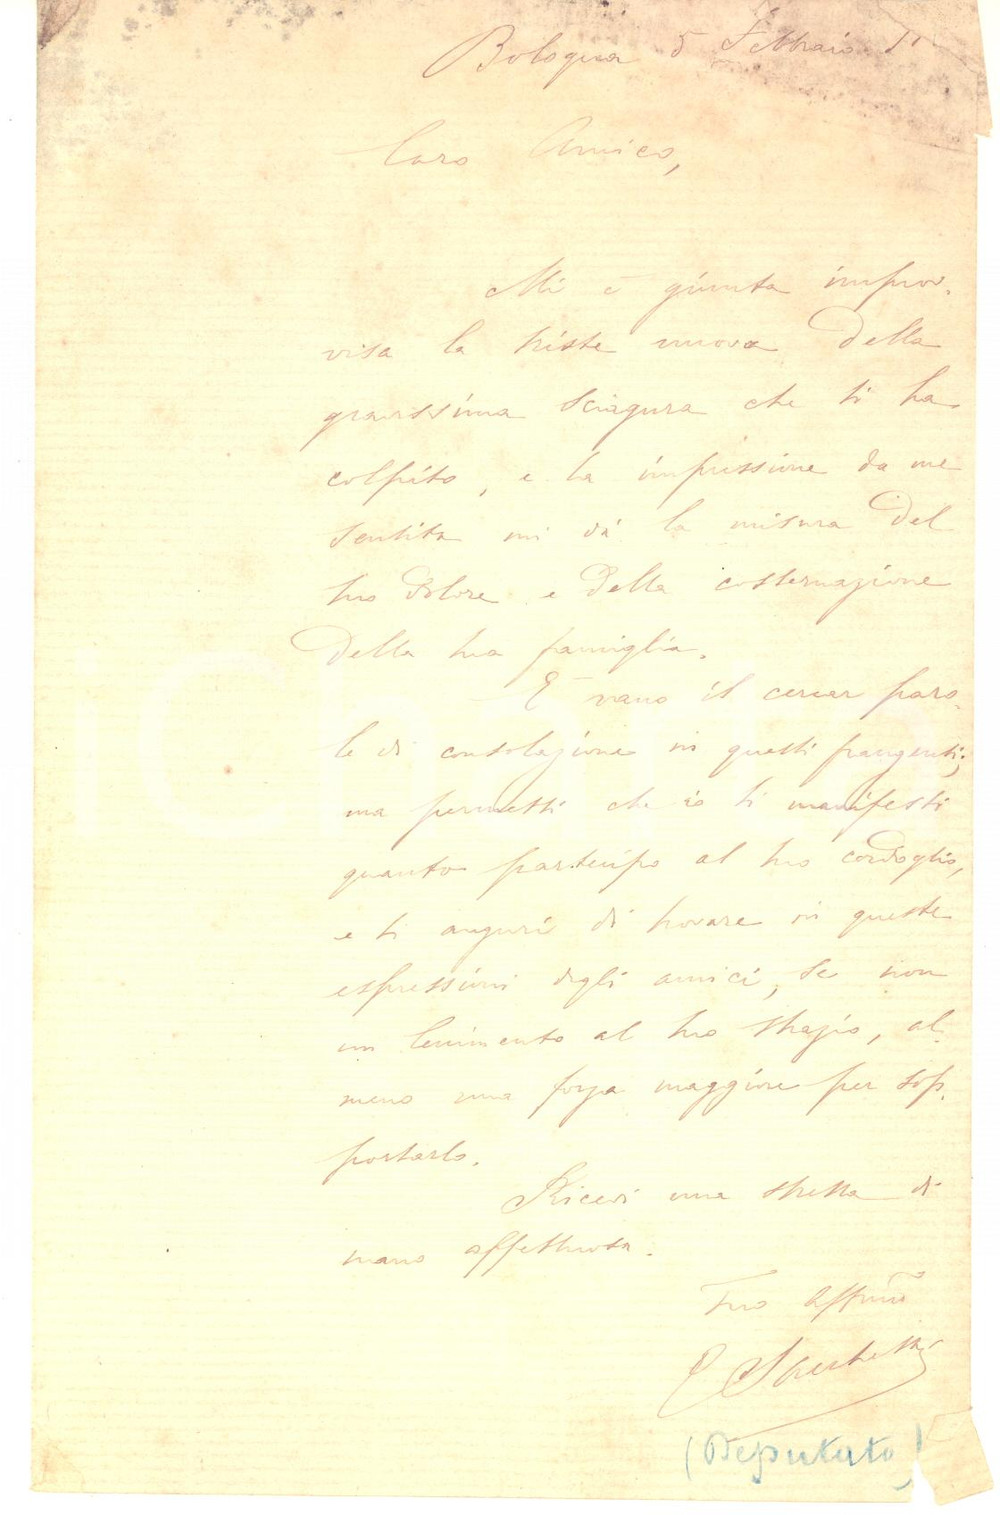 Bologna 5 Febbraio
Caro Amico,
Mi è giunta improv-
visa la triste nuova della
gravissima sciagura che ti ha
colpito, e la impressione da me
sentita mi dà la misura del
tuo dolore e della costernazione
della tua famiglia.
È vano il cercar paro-
le di consolazione in questi frangenti;
ma permetti che io ti manifesti
quanto partecipo al tuo cordoglio,
e ti auguri di trovare in queste
espressioni degli amici, se non
un lenimento al tuo strazio, al-
meno una forza maggiore per sop-
portarlo.
Ricevi una stretta di
mano affettuosa.
Tuo Affmo
(Deputato)